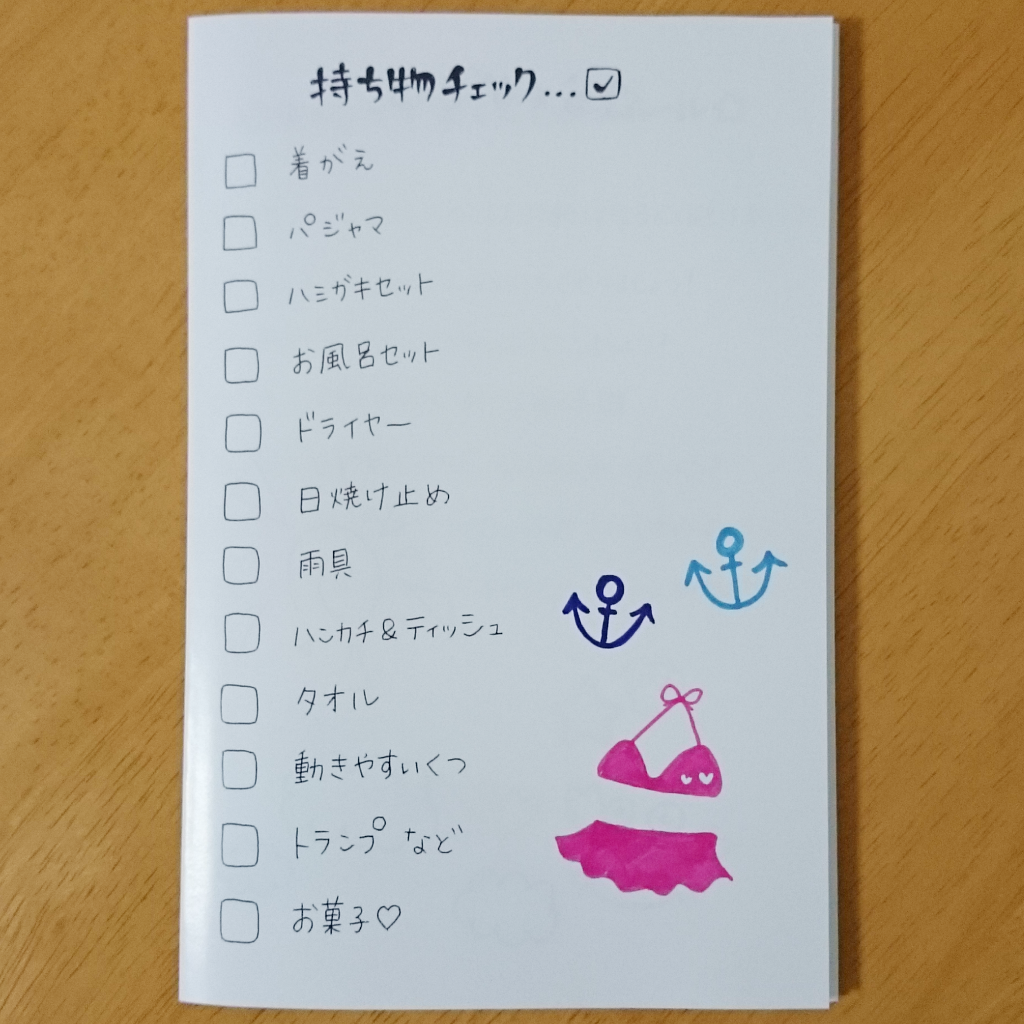 持ち物チェック...☑
□ 着がえ
□ パジャマ
□ ハミガキセット
□ お風呂セット
□ ドライヤー
□ 日焼け止め
□ 雨具
□ ハンカチ&ティッシュ
□ タオル
□ 動きやすいくつ
□ トランプ など
□ お菓子♡